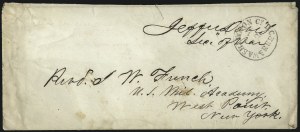 Jeffer. Davis
Sec. of War
Revd. J. W. French
U.S. Mil. Academy
West Point
New York.